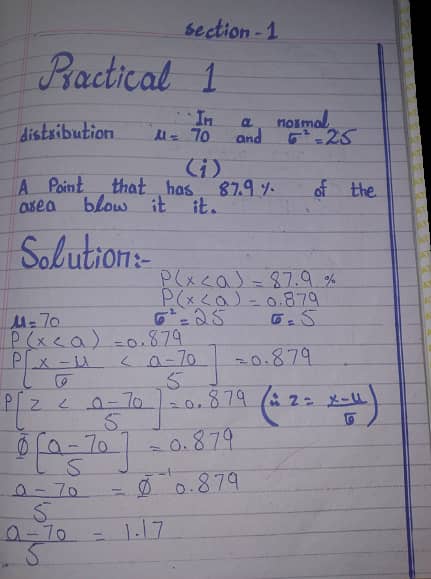 section-1
Practical 1
In a normal
distribution μ= 70 and σ²=25
(i)
A Point that has 87.9 % of the
area blow it it.
Solution:-
P(x<a) = 87.9 %
P(x<a) = 0.879
μ=70 σ²=25 σ=5
P(x<a) =0.879
P[x-μ/σ < a-70/5] =0.879
P[z < a-70/5] =0.879 (∵ z = x-μ/σ)
Φ[a-70/5] =0.879
a-70/5 = Φ⁻¹ 0.879
a-70/5 = 1.17